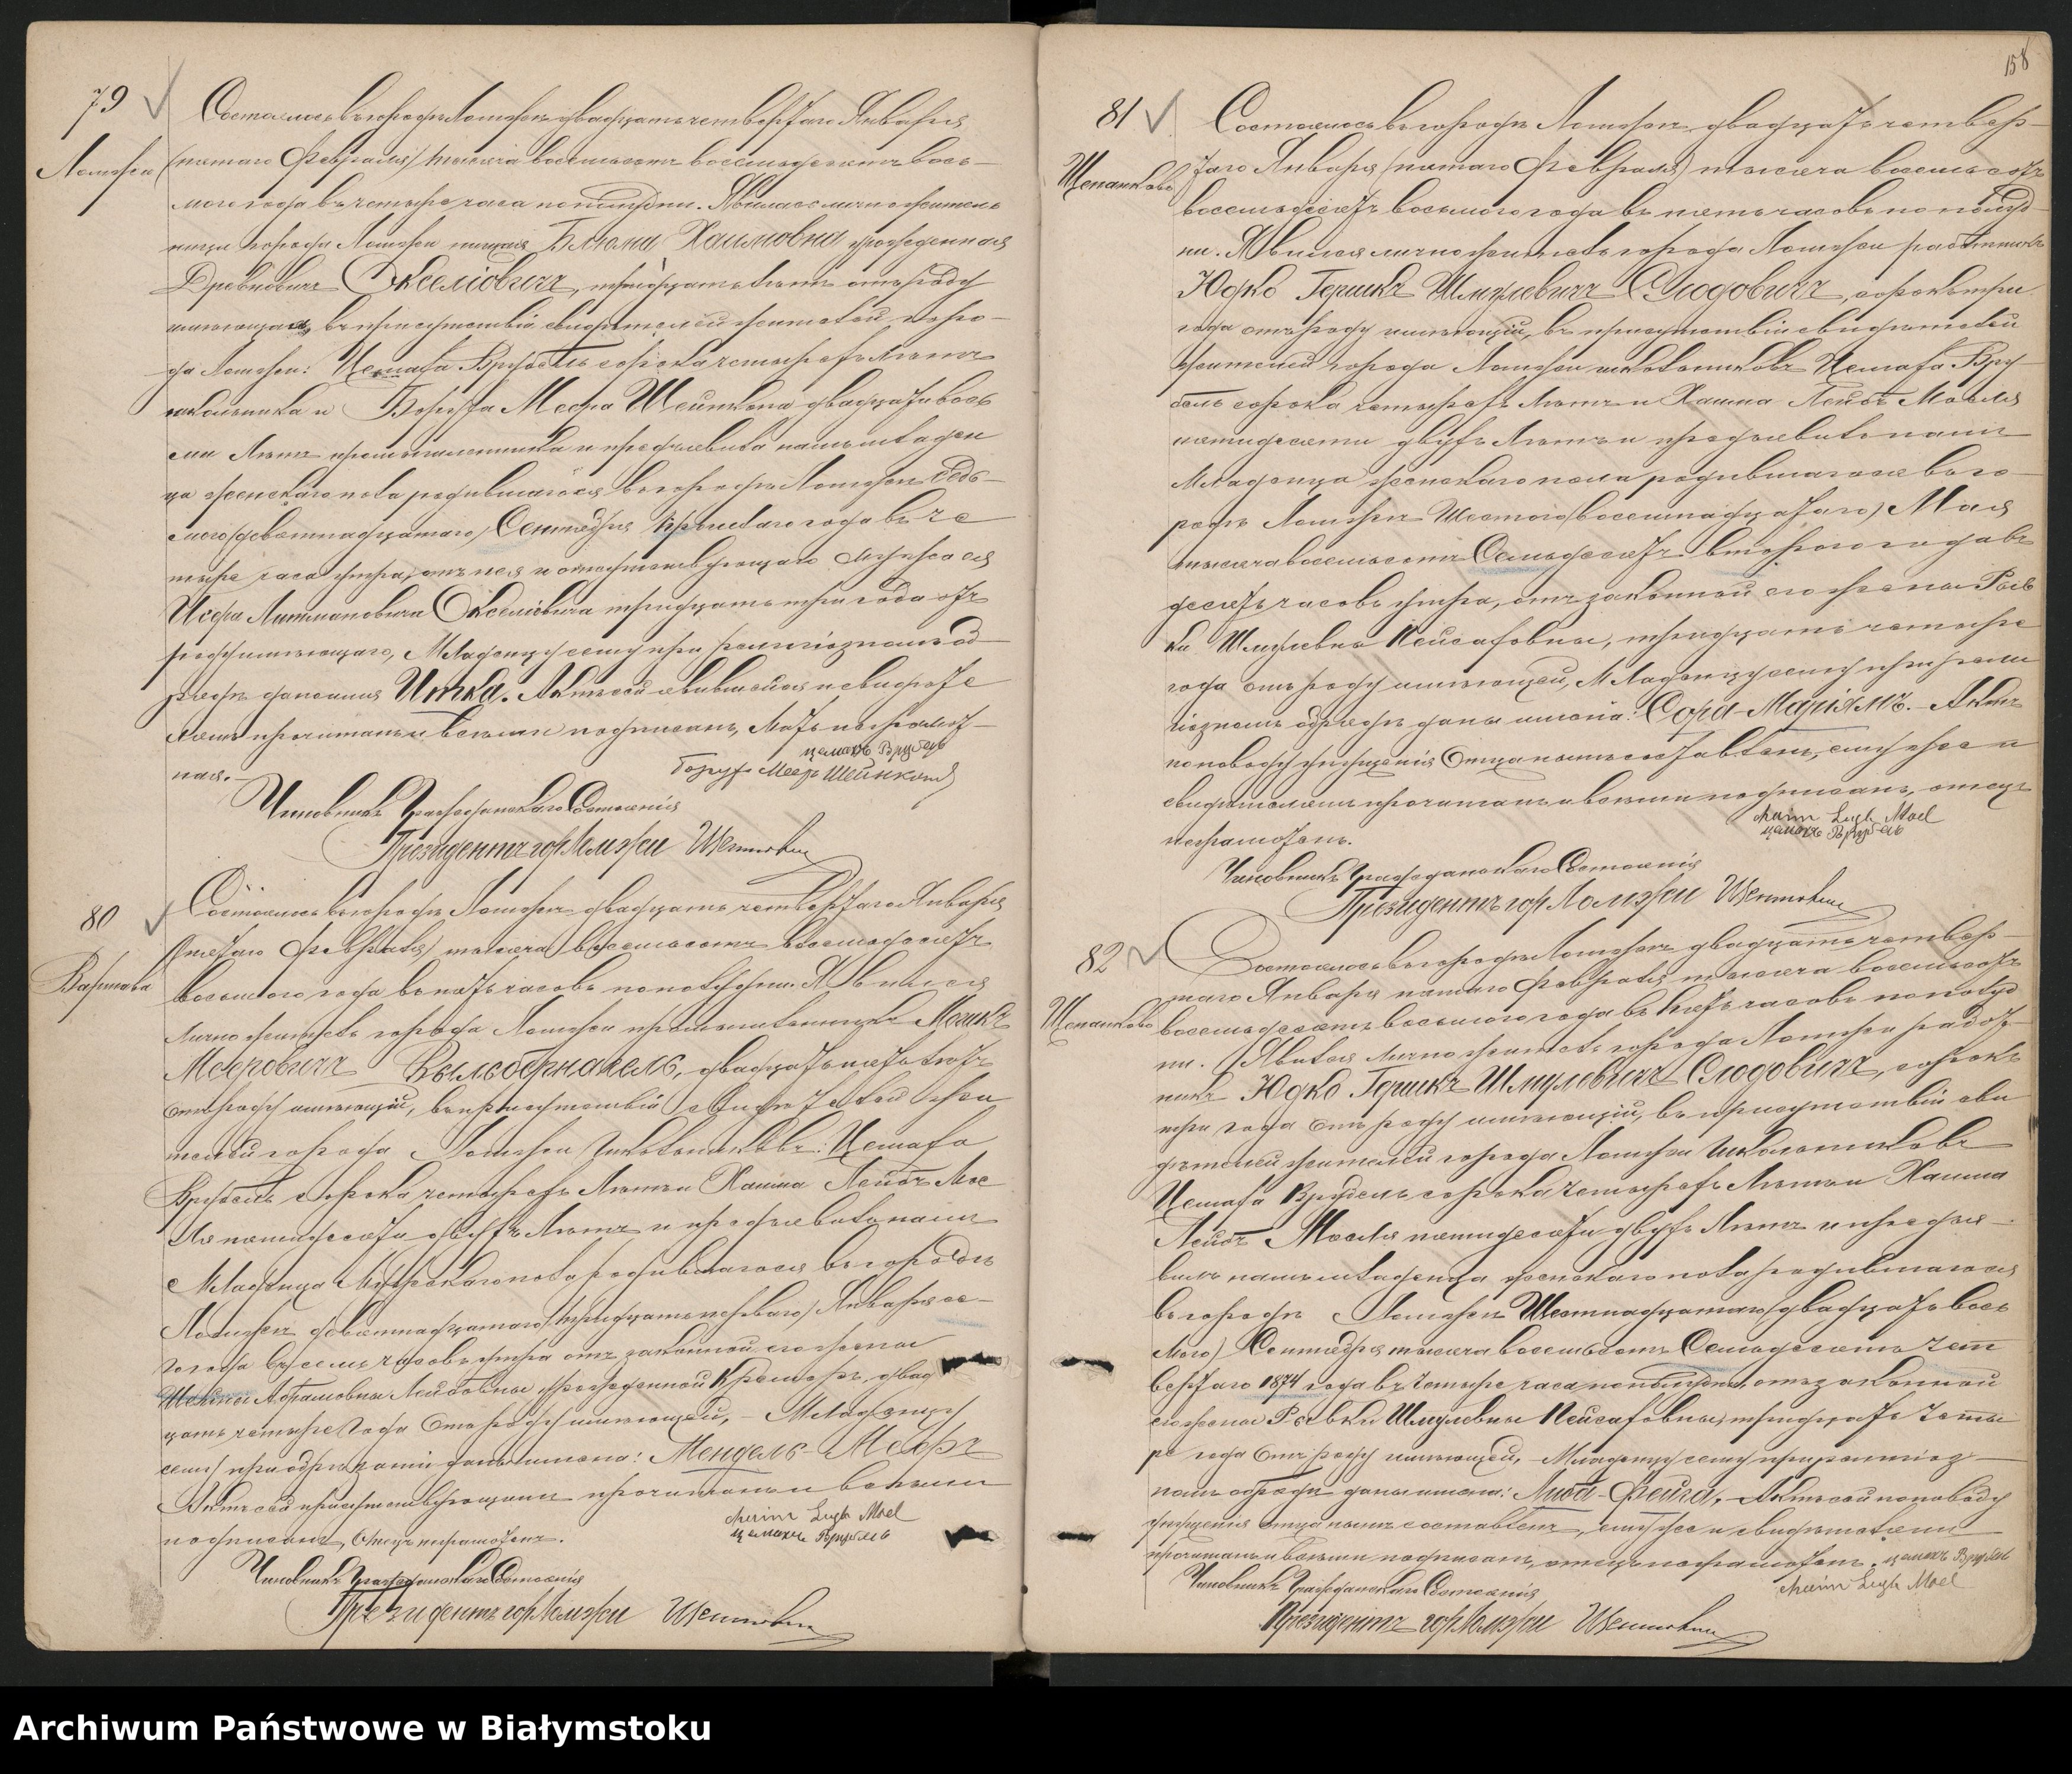 79
Ломжа
Состоялось въ городѣ Ломжѣ двадцать четвертаго Января
(пятаго Февраля) тысяча восемьсотъ восемьдесятъ вось-
маго года въ четыре часа пополудни. Явилась лично житель
ница города Ломжи Блюма Хаимовна урожденная
Древновичъ Окселіовичъ, тридцать лѣтъ отъ роду
имѣющая, въ присутствіи свидѣтелей жителей горо-
да Ломжи: Цемаха Врубель сорока четырехъ лѣтъ
школьника и Боруха Меера Шейнкопа двадцати вось
ми лѣтъ промышленника и предъявила намъ младен
ца женскаго пола родившагося въ городѣ Ломжѣ седь-
маго (девятнадцатаго) Сентября прошлаго года въ че
тыре часа утра, отъ нея и отсутствующаго мужа ея
Исера Литмановича Окселіовича тридцать три года отъ
роду имѣющаго, Младенцу сему при религіозномъ об-
рядѣ дано имя Итка. Актъ сей явившейся и свидѣте
лямъ прочитанъ и всѣми подписанъ, Мать неграмот-
ная.-
цемахъ Врубель
Борухъ Мееръ Шейнкопф
Чиновникъ Гражданскаго Состоянія
Президентъ гор Ломжи
80
Варшава
Состоялось въ городѣ Ломжѣ двадцать четвертаго Января
(пятаго Февраля) тысяча восемьсотъ восемьдесятъ
восьмого года въ пять часовъ пополудни. Явился
лично житель города Ломжи
Мееровичъ двадцать пять лѣтъ
отъ роду имѣющій, въ присутствіи свидѣтелей жи
телей города Ломжи школьниковъ: Цемаха
Врубель сорока четырехъ лѣтъ и Хаима Лейбъ Мое
ля пятидесяти двухъ лѣтъ и предъявилъ намъ
Младенца Мужескаго пола родившагося въ городѣ
Ломжѣ девятнадцатаго (тридцать перваго) Января се-
го года въ семь часовъ утра отъ законной его жены
Абрамовны Лейбовны урожденной Кремеръ, двад
цать четыре года отъ роду имѣющей, - Младенцу
сему при обрѣзаніи даны имена: Мендель-Меэръ
Актъ сей присутствующимъ прочитанъ и всѣми
подписанъ, Отецъ неграмотенъ.
Chaim Lejb Moel
цемахъ Врубель
Чиновникъ Гражданскаго Состоянія
Президентъ гор Ломжи
158
81
Щепанково
Состоялось въ городѣ Ломжѣ двадцать четвер-
таго Января (пятаго Февраля) тысяча восемьсотъ
восемьдесятъ восьмого года въ пять часовъ пополуд
ни. Явился лично житель города Ломжи работникъ
Юдко Гершкъ Шмулевичъ Слодовичъ, сорокъ три
года отъ роду имѣющій, въ присутствіи свидѣтелей
жителей города Ломжи школьниковъ Цемаха Вру-
бель сорока четырехъ лѣтъ и Хаима Лейбъ Моеля
пятидесяти двухъ лѣтъ и предъявилъ намъ
Младенца женскаго пола родившагося въ го-
родѣ Ломжѣ Шестого (восемнадцатаго) Мая
тысяча восемьсотъ Семьдесятъ второго года въ
десять часовъ утра, отъ законной его жены Рыв
ки Шмулевны Пейсаховны, тридцать четыре
года отъ роду имѣющей, Младенцу сему при рели
гіозномъ обрядѣ даны имена: Сора-Маріямъ.- Актъ
по поводу упущенія Отца позже составленъ, ему же и
свидѣтелямъ прочитанъ и всѣми подписанъ, отецъ
неграмотенъ.
Chaim Lejb Moel
цемахъ Врубель
Чиновникъ Гражданскаго Состоянія
Президентъ гор Ломжи
82
Щепанково
Состоялось въ городѣ Ломжѣ двадцать четвер-
таго Января пятаго Февраля тысяча восемьсотъ
восемьдесятъ восьмого года въ пять часовъ пополуд
ни. Явился лично житель города Ломжи работ-
никъ Юдко Гершкъ Шмулевичъ Слодовичъ, сорокъ
три года отъ роду имѣющій, въ присутствіи сви
дѣтелей жителей города Ломжи школьниковъ
Цемаха Врубель сорока четырехъ лѣтъ и Хаима
Лейбъ Моеля пятидесяти двухъ лѣтъ и предъя-
вилъ намъ младенца женскаго пола родившагося
въ городѣ Ломжѣ Шестнадцатаго (двадцать вось
маго) Сентября тысяча восемьсотъ Семьдесятъ чет
вертаго 1874 года въ четыре часа пополудни, отъ законной
его жены Рывки Шмулевны Пейсаховны, тридцать четы
ре года отъ роду имѣющей, - Младенцу сему при религіоз-
номъ обрядѣ даны имена: Люба-Фейга, - Актъ сей по поводу
упущенія отца позже составленъ, ему же и свидѣтелямъ
прочитанъ и всѣми подписанъ, отецъ неграмотенъ. цемахъ Врубель
Chaim Lejb Moel
Чиновникъ Гражданскаго Состоянія
Президентъ гор Ломжи
Archiwum Państwowe w Białymstoku